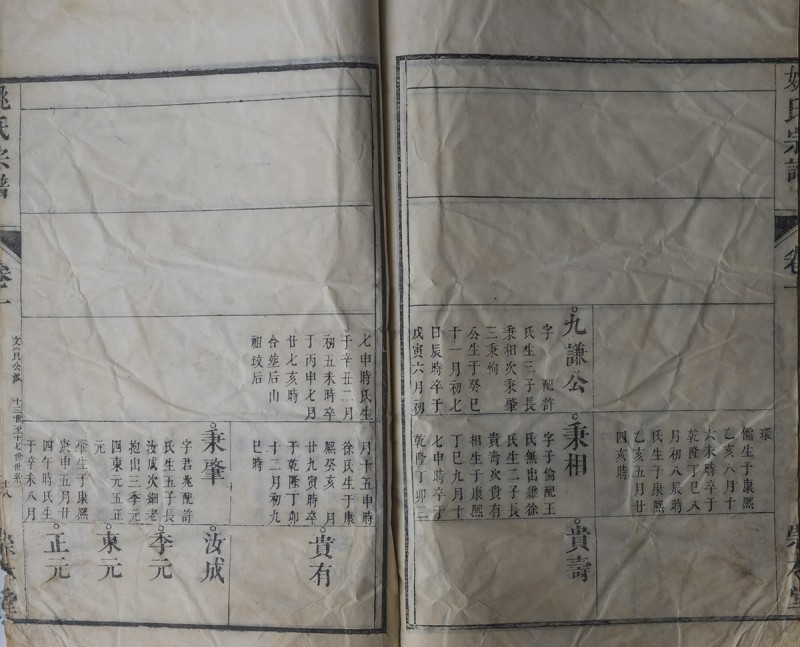 姚氏宗譜
卷一
儒生于康熙
乙亥八月十
六未時卒于
乾隆丁巳八
月初八辰時
氏生于康熙
乙亥五月廿
四亥時
九謙公
字 配許
氏生三子長
秉相次秉肇
三秉徇
公生于癸巳
十一月初七
日辰時卒于
戊寅六月初
七申時氏生
于辛丑二月
初五未時卒
于丙申七月
廿七亥時
合塟后山
祖墳后
秉相
字子倫配王
氏無出隸徐
氏生二子長
貴壽次貴有
相生于康熙
丁巳九月十
七申時卒于
乾隆丁卯三
月十五申時
徐氏生于康
熙癸亥 月
廿九寅時卒
于乾隆丁卯
十二月初九
巳時
秉肇
字君兆配許
氏生五子長
汝成次細老
抱出三季元
四東元五正
元
肇生于康熙
庚申五月廿
四午時氏生
于辛未八月
貴壽
貴有
汝成
季元
東元
正元
姚氏宗譜
卷一